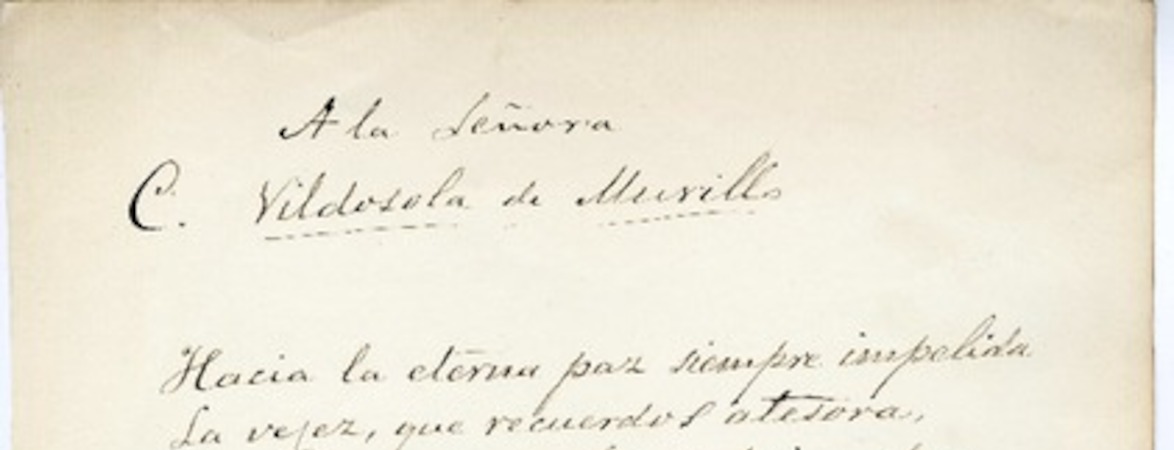 A la Señora
C. Vildosola de Murillo
Hacia la eterna paz siempre impelida
La vejez, que recuerdos atesora,